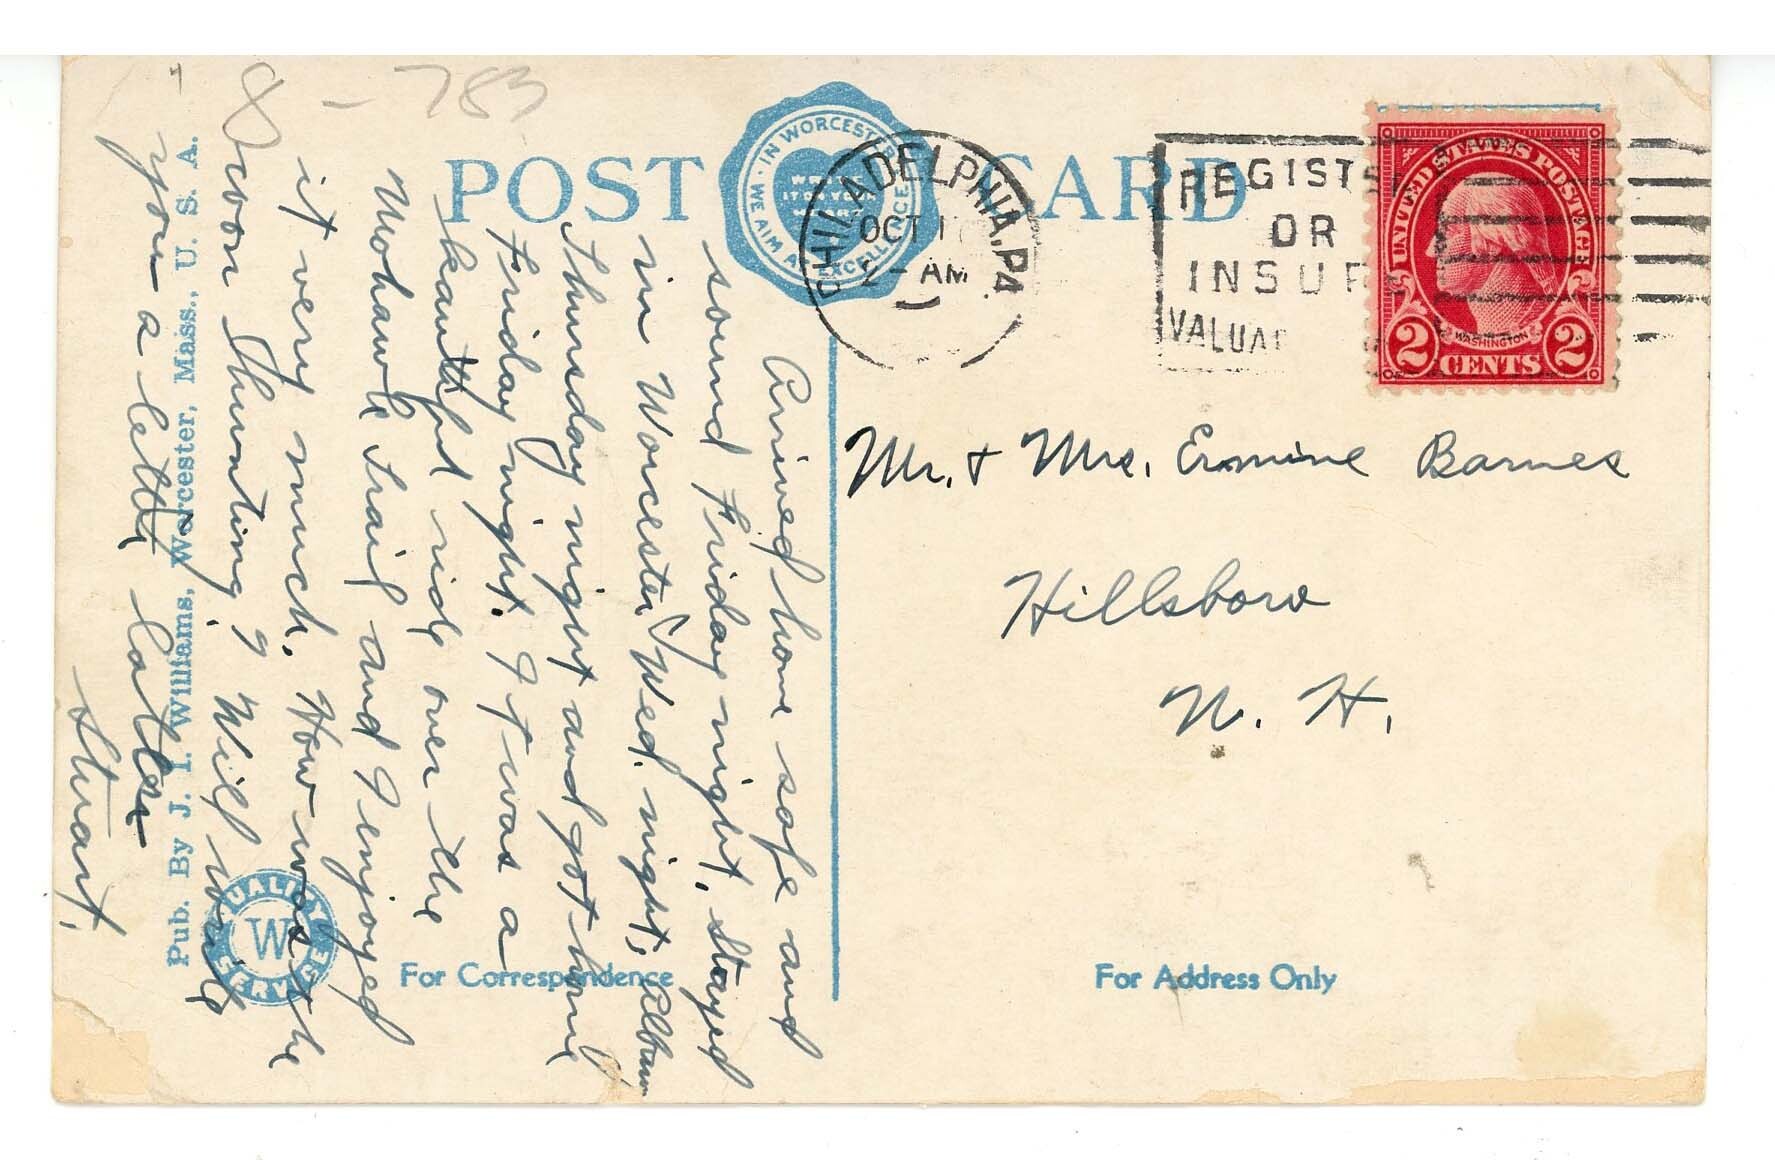 783
POST CARD
IN WORCESTER
WE AIM AT EXCELLENCE
PHILADELPHIA, PA
OCT 1
2 - AM
REGIST
OR
INSUR
VALUA
UNITED STATES POSTAGE
WASHINGTON
2 CENTS 2
Arrived home safe and
sound Friday night. Stayed
in Worcester Wed. night, Albany
Thursday night and got home
Friday night. It was a
beautiful ride over the
Mohawk Trail and I enjoyed
it very much. How was the
coon hunting? Will write
you a letter later
Stuart.
Mr. & Mrs. Ermine Barnes
Hillsboro
N. H.
For Correspondence
For Address Only
QUALITY
W
SERVICE
Pub. By J. I. Williams, Worcester, Mass., U. S. A.